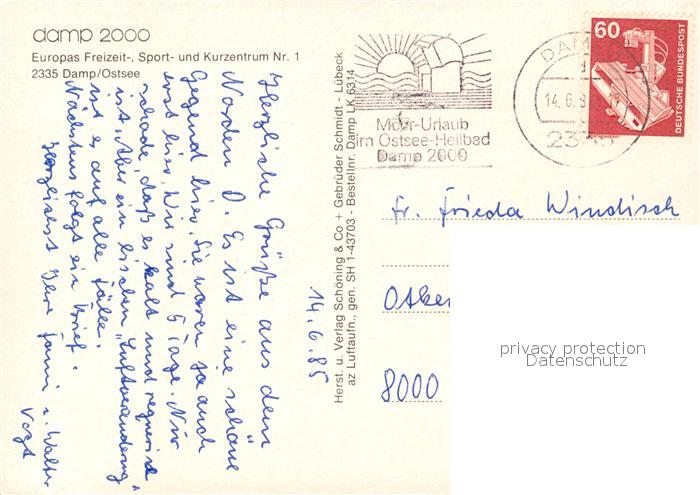 damp 2000
Europas Freizeit-, Sport- und Kurzentrum Nr. 1
2335 Damp/Ostsee
Herzliche Grüße aus dem
Norden D. Es ist eine schöne
Gegend hier. Sie waren ja auch
hier. Wir sind 5 Tage. Nur
schade, daß es kalt und regnerisch
ist. Aber ein bischen "Luftveränderung"
ist es auf alle Fälle.
Nächstens folgt ein Brief.
Herzlichst Ihre Fanni u. Walter
Vogt
14.6.85
Herst. u. Verlag Schöning & Co + Gebrüder Schmidt · Lübeck
az Luftaufn., gen. SH 1-43703 - Bestellnr. Damp LK 6314
Moor-Urlaub
im Ostsee-Heilbad
Damp 2000
DAMP
14.6.8
2335
60
DEUTSCHE BUNDESPOST
Fr. Frieda Windisch
8000
privacy protection
Datenschutz